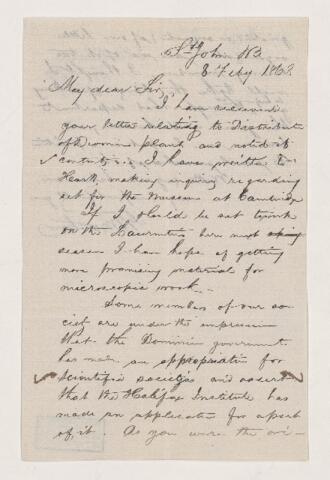 St John NB
8 Feby 1868
My dear Sir,
I have received
your letter relating to Distribution
of Devonian plants and noted it
contents. I have written to
Hartt making inquiry regarding
set for the Museum at Cambridge
If I should be set to work
on the Laurentian here next spring
season I have hope of getting
more promising material for
microscopic work.
Some members of our so-
ciety are under the impression
that the Dominion government
has made an appropriation for
scientific societies and assert
that the Halifax Institute has
made an application for a part
of it. As you were the ori-